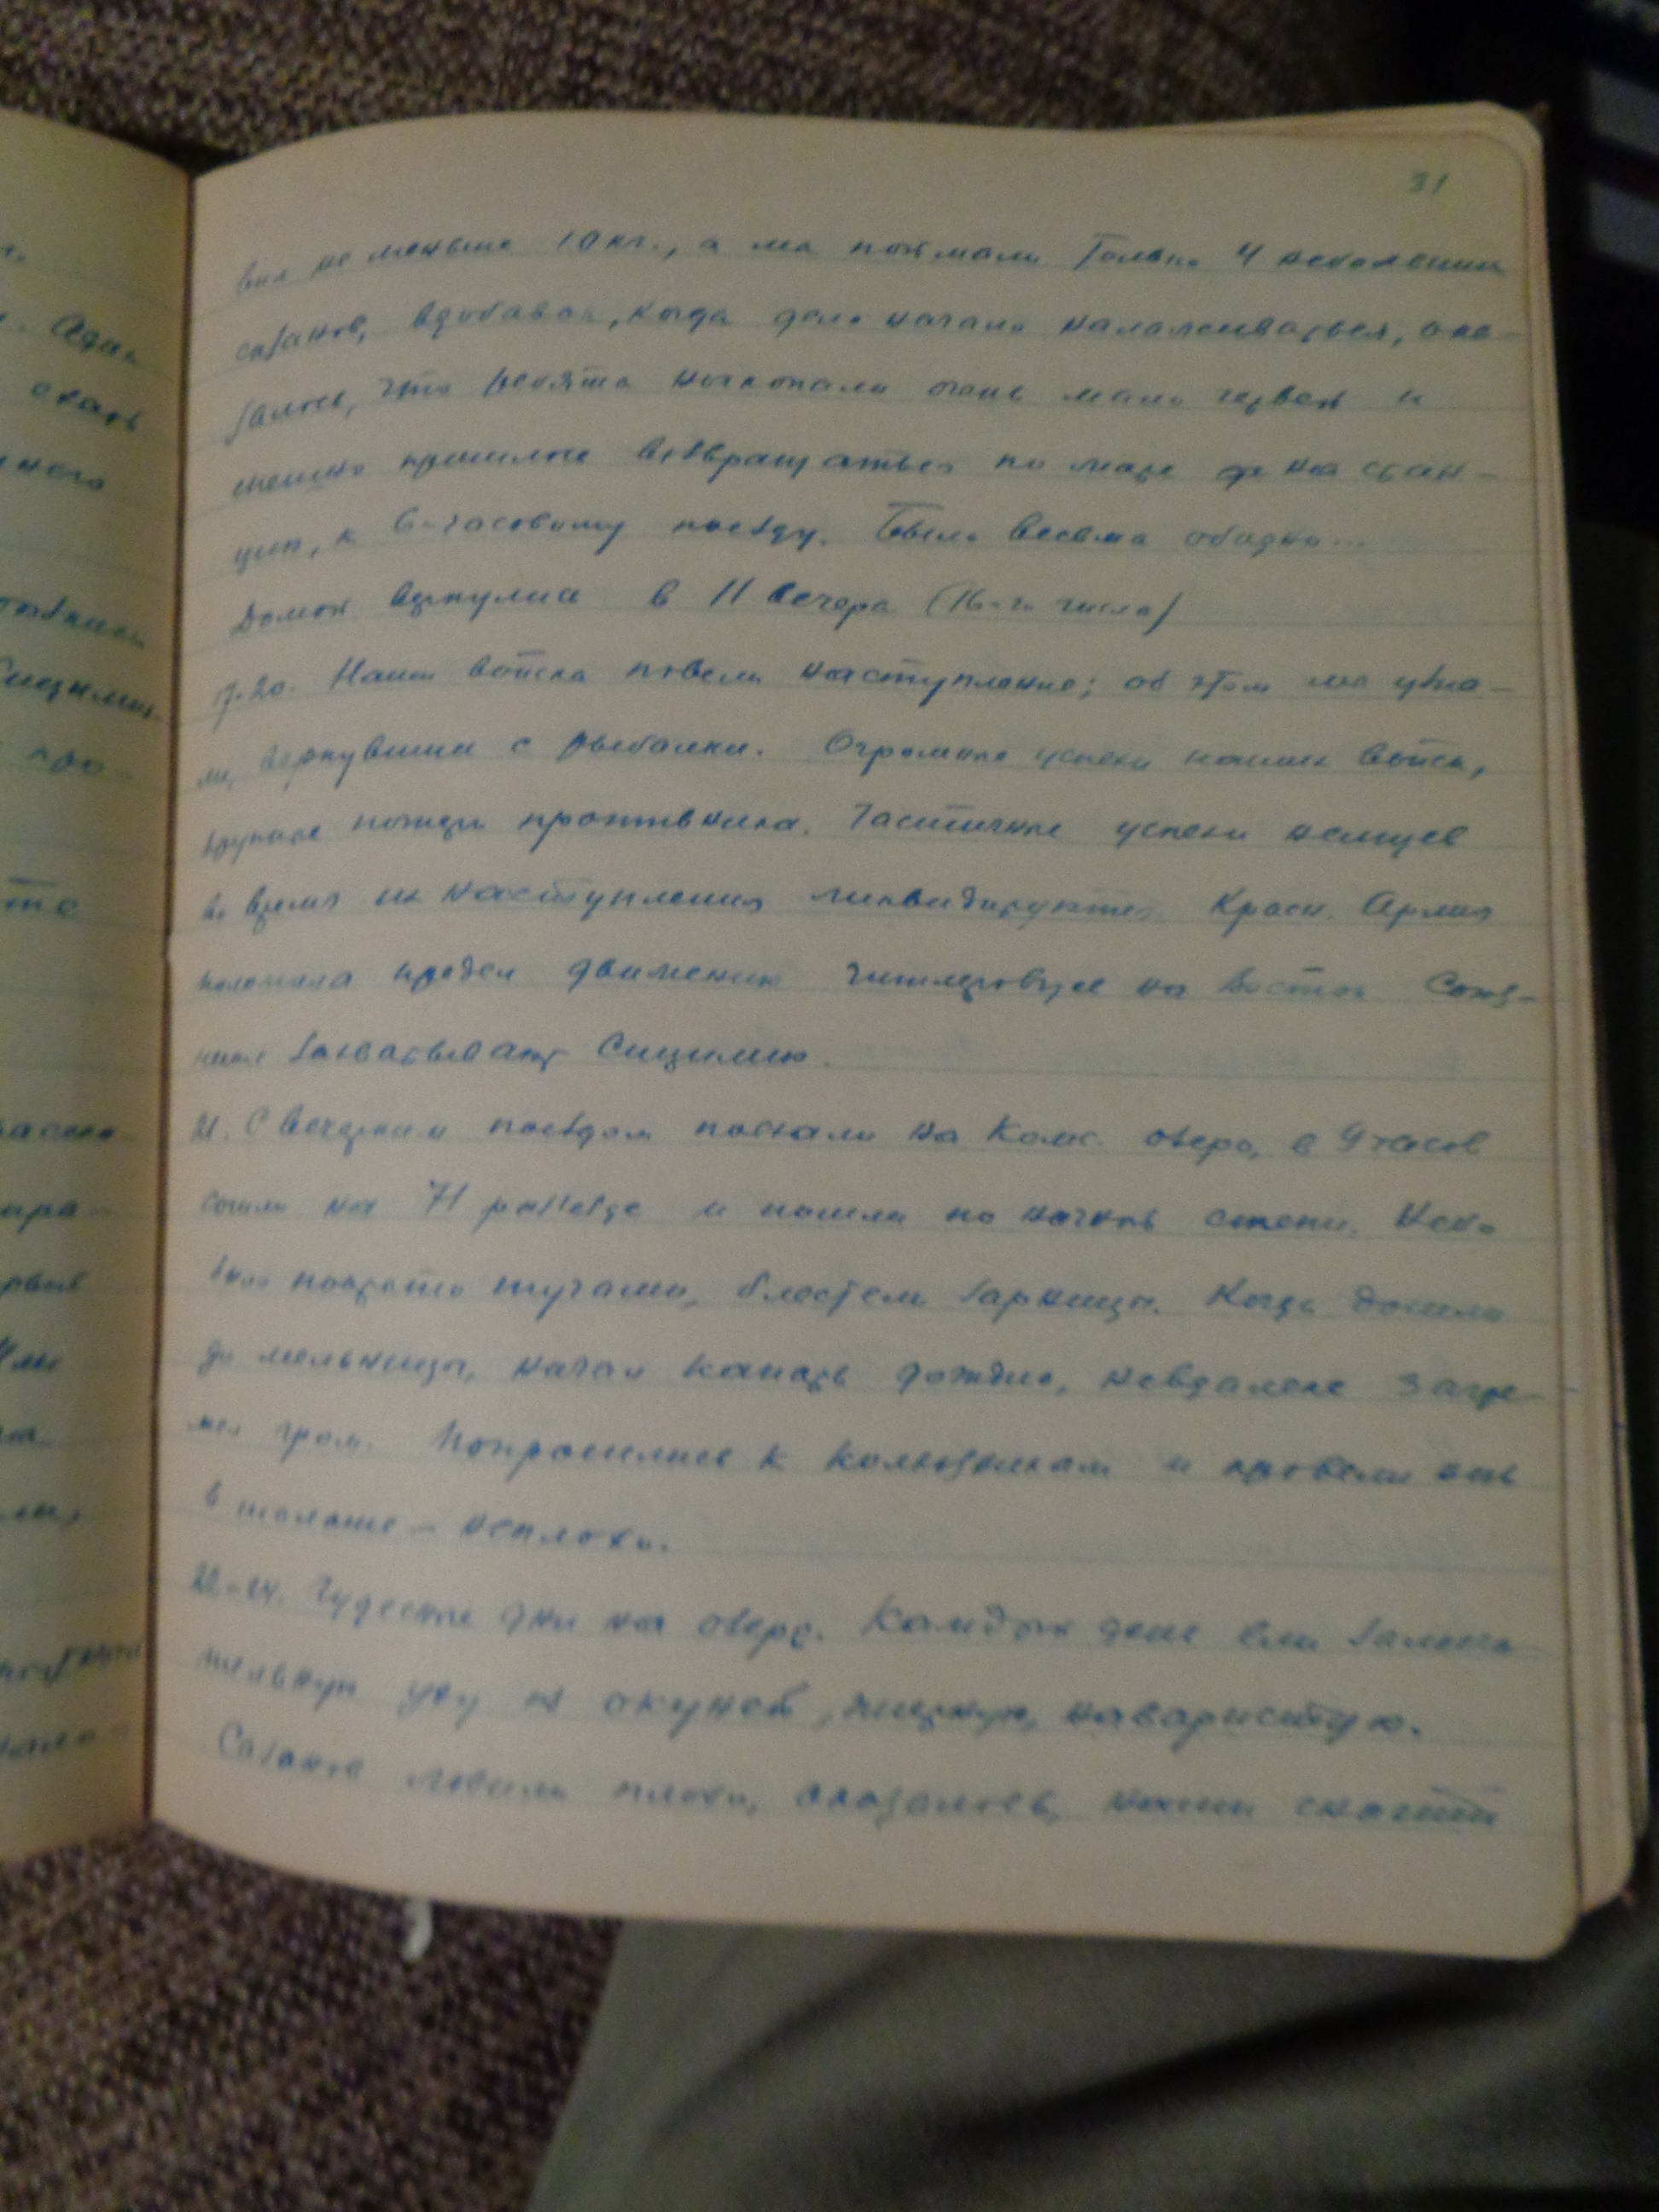 31
вил не меньше 10 кг., а мы поймали только 4 небольших
сазанов, вдобавок, когда дело начало налаживаться, ока-
залось, что ребята накопали очень мало червей и
спешно пришлось возвращаться по жаре на стан-
цию, к 6-часовому поезду. Было весьма обидно...
Домой вернулись в 11 вечера (16-го числа)
17-20. Наши войска повели наступление; об этом мы узна-
ли, вернувшись с рыбалки. Огромные успехи наших войск,
крупные потери противника. Частичные успехи немцев
во время их наступления ликвидируются. Красн. Армия
положила предел движению гитлеровцев на восток. Союз-
ники захватывают Сицилию.
21. С вечерним поездом поехали на Камс. озеро, в 9 часов
сошли на 71 разъезде и пошли по ночной степи. Небо
было покрыто тучами, блестели зарницы. Когда дошли
до мельницы, начал капать дождь, невдалеке загре-
мел гром. Попросились к колхозникам и провели ночь
в шалаше - неплохо.
22-24. Чудесные дни на озере. Каждый день ели замеча
тельную уху из окуней, жирную, наваристую.
Сазанов ловили плохо, оказалось, наши снасти
Один
ехать
ного
те